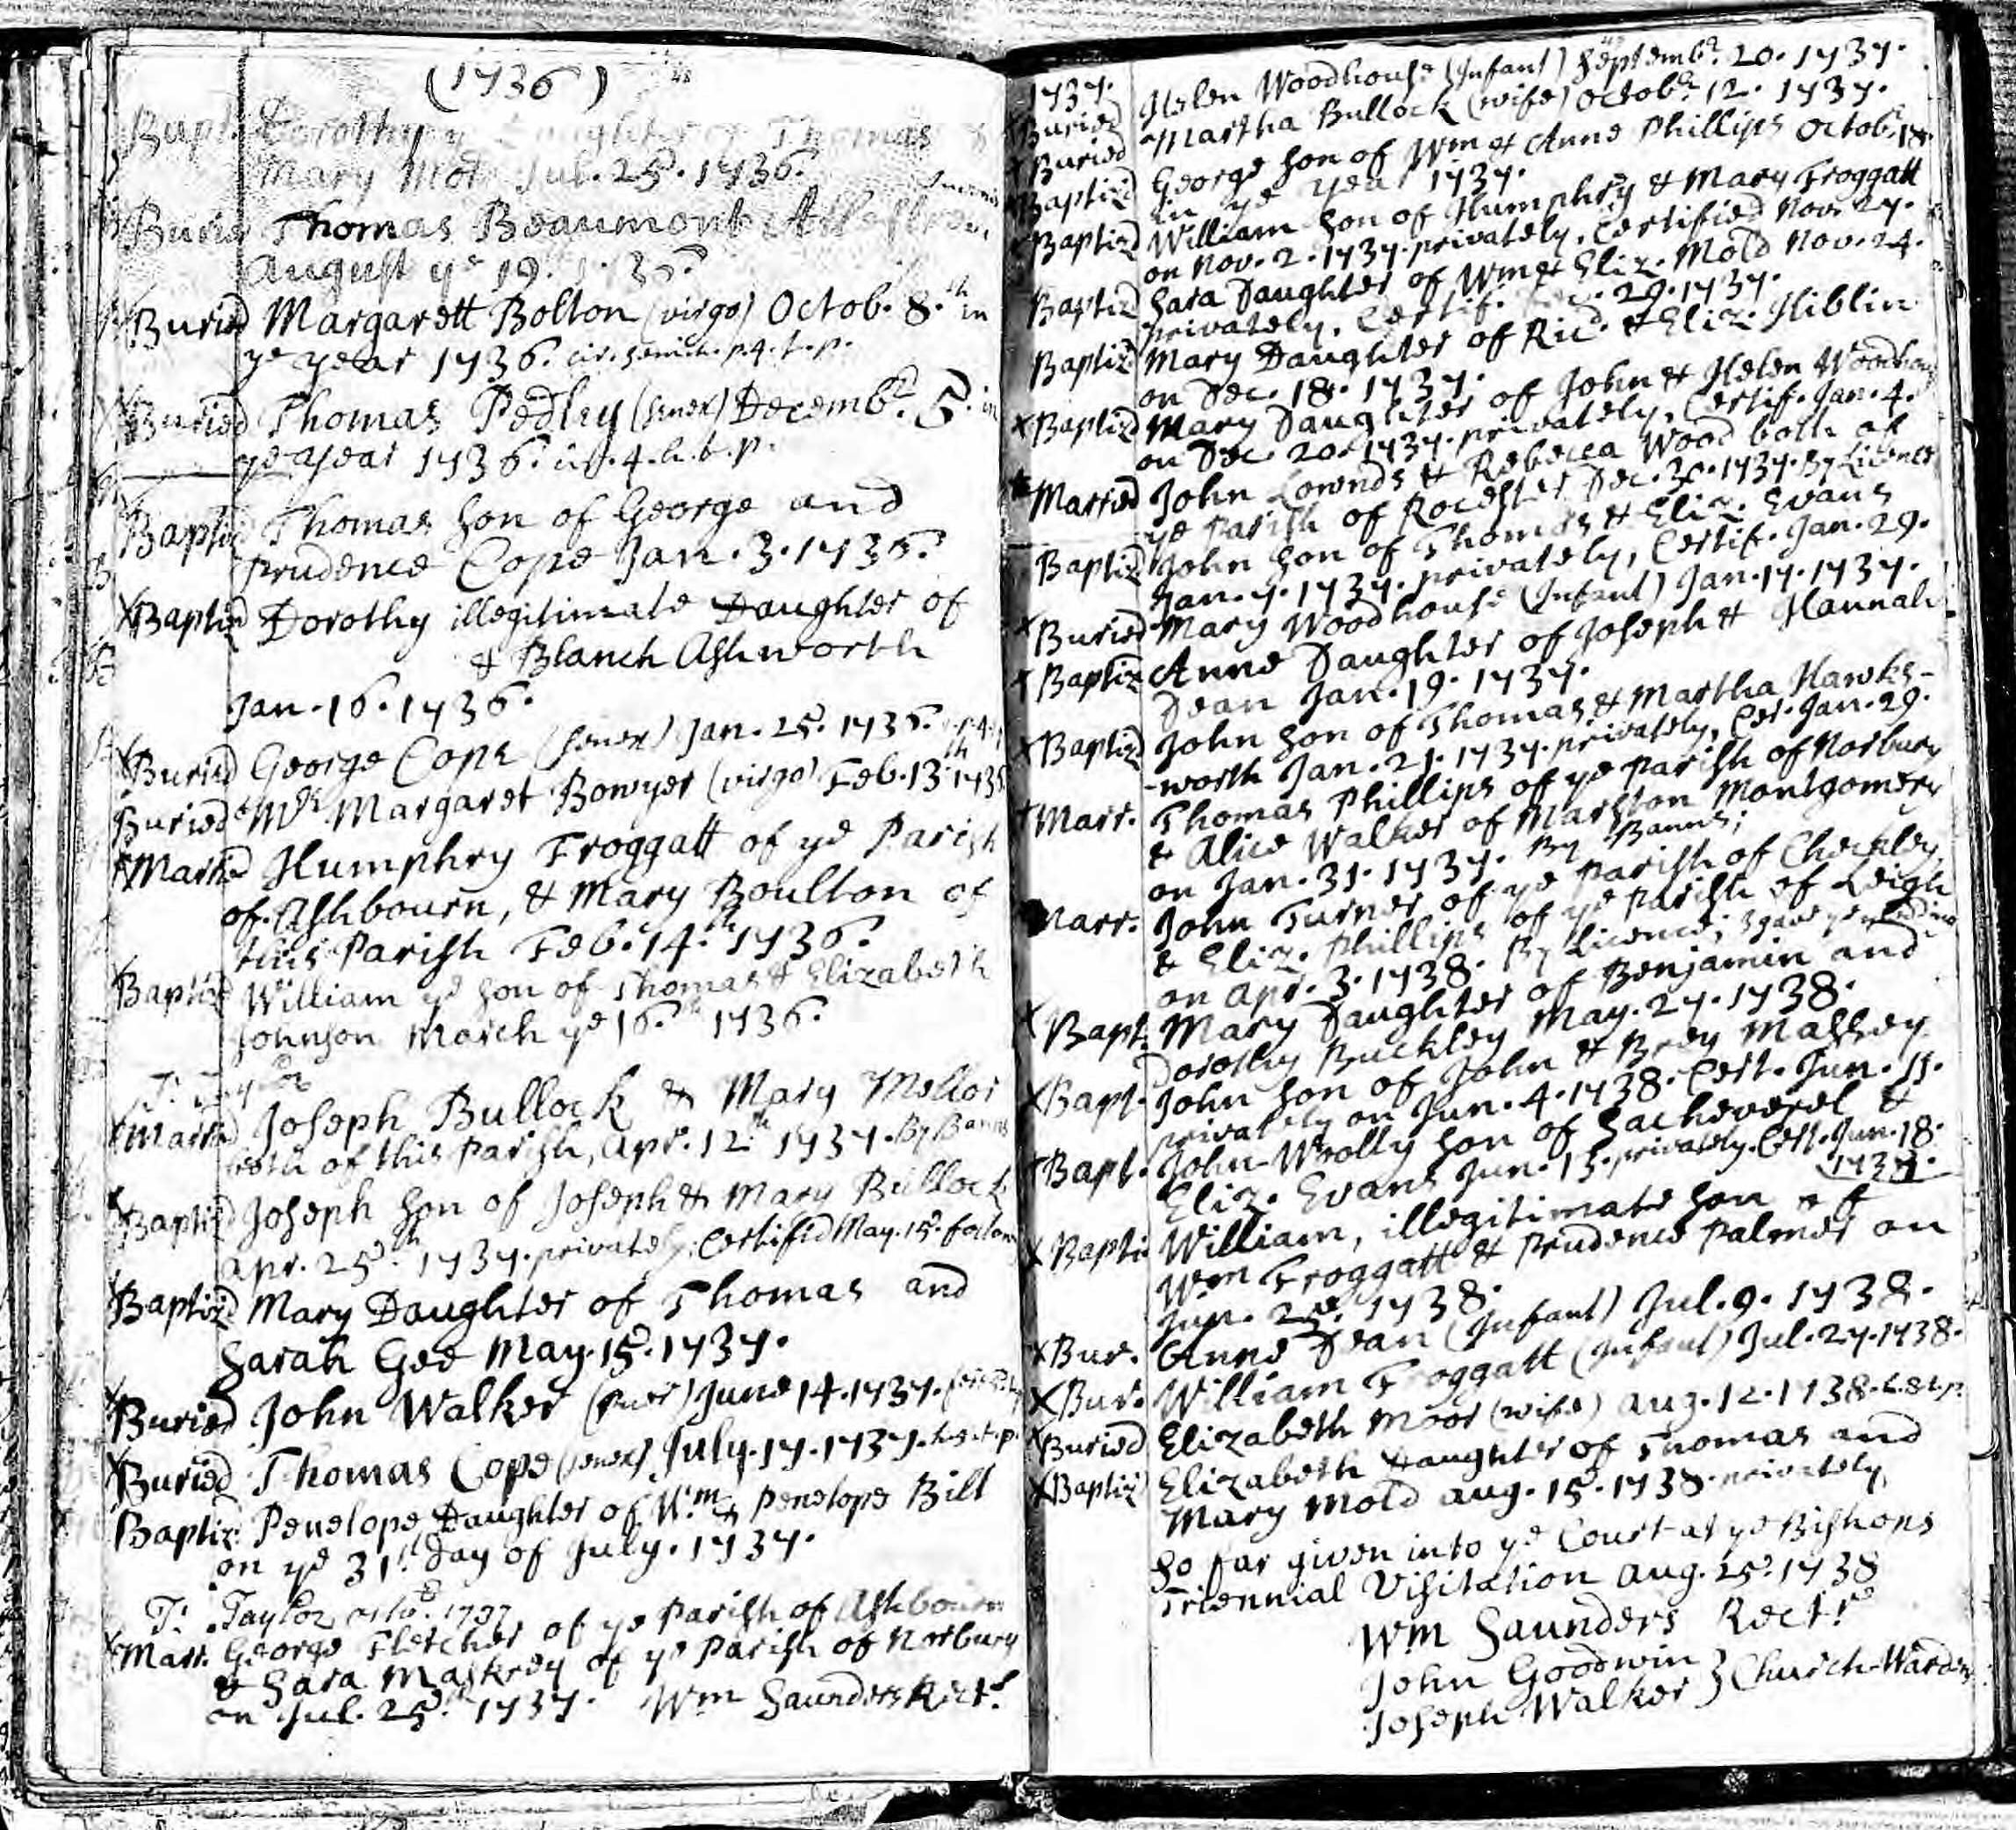 (1736)
Bapt Dorothy Daughter of Thomas &
Mary Mold Jul. 25. 1736.
Buried Thomas Beaumont
August ye 19.
Buried Margarett Bolton (virgo) Octob. 8.th in
ye year 1736.
Buried Thomas Pedley (senex) Decembr. 5. in
ye year 1736.
Baptizd Thomas Son of George and
Prudence Cope Jan. 3. 1736.
X Baptizd Dorothy illegitimate Daughter of
& Blanch Ashworth
Jan. 16. 1736.
X Buried George Cope (senex) Jan. 25. 1736.
Buried Mrs Margaret Bowyer (virgo) Feb. 13th 1736
Married Humphry Froggatt of ye Parish
of Ashbourn, & Mary Boulton of
this Parish Feb. 14.th 1736.
Baptizd William ye Son of Thomas & Elizabeth
Johnson March ye 16.th 1736.
X Married Joseph Bullock & Mary Mellor
both of this Parish, Apr. 12.th 1737. By Banns
X Baptizd Joseph Son of Joseph & Mary Bullock
Apr. 25.th 1737. privately. Certified May. 15.
Baptizd Mary Daughter of Thomas and
Sarah Gee May. 15. 1737.
X Buried John Walker (puer) June 14. 1737.
X Buried Thomas Cope (senex) July. 17. 1737.
Baptiz: Penelope Daughter of Wm & Penelope Bill
on ye 31st Day of July. 1737.
T: Taylor octbr. 1737
X Marr. George Fletcher of ye Parish of Ashbourn
& Sara Maskrey of ye Parish of Norbury
on Jul. 25.th 1737. Wm Saunders Rectr.
1737.
Buried Helen Woodhouse (Infant) Septembr. 20. 1737.
X Buried Martha Bullock (wife) Octobr. 12. 1737.
Baptizd George Son of Wm & Anne Phillips Octob. 18.
in ye Year 1737.
Baptizd William Son of Humphry & Mary Froggatt
on Nov. 2. 1737. privately, Certified Nov. 27.
Baptizd Sara Daughter of Wm & Eliz. Mold Nov. 24.
privately, Certif. 29. 1737.
Baptizd Mary Daughter of Ricd. & Eliz. Hiblin
on Dec. 18. 1737.
X Baptizd Mary Daughter of John & Helen Woodhouse
on Dec. 20. 1737. privately, Certif. Jan. 4.
Married John Lownds & Rebecca Wood both of
ye Parish of Rocester Dec. 30. 1737. By Licence
Baptizd John Son of Thomas & Eliz. Evans
Jan. 7. 1737. privately, Certif. Jan. 29.
X Buried Mary Woodhouse (Infant) Jan. 17. 1737.
X Baptizd Anne Daughter of Joseph & Hannah
Dean Jan. 19. 1737.
X Baptizd John Son of Thomas & Martha Hawks-
-worth Jan. 21. 1737. privately, Cer. Jan. 29.
Marr. Thomas Phillips of ye Parish of Norbury
& Alice Walker of Marston Montgomery
on Jan. 31. 1737. By Banns;
Marr. John Turner of ye Parish of Checkley,
& Eliz. Phillips of ye Parish of Leigh
on Apr. 3. 1738. By Licence;
X Bapt. Mary Daughter of Benjamin and
Dorothy Buckley May. 27. 1738.
X Bapt. John Son of John & Massey
privately on Jun. 4. 1738. Cert. Jun. 11.
Bapt. John-Wrolly Son of Sacheverel &
Eliz. Evans Jun. 13. privately. Cert. Jun. 18.
X Baptiz William, illegitimate Son of
Wm Froggatt & Prudence Palmer on
Jun. 25. 1738.
X Bur. Anne Dean (Infant) Jul. 9. 1738.
X Bur. William Froggatt (Infant) Jul. 27. 1738.
X Buried Elizabeth Moor (wife) Aug. 12. 1738.
X Baptiz Elizabeth Daughter of Thomas and
Mary Mold Aug. 15. 1738. privately
So far given into ye Court at ye Bishops
Triennial Visitation Aug. 25. 1738
Wm Saunders Rectr.
John Goodwin } Church-Wardens
Joseph Walker